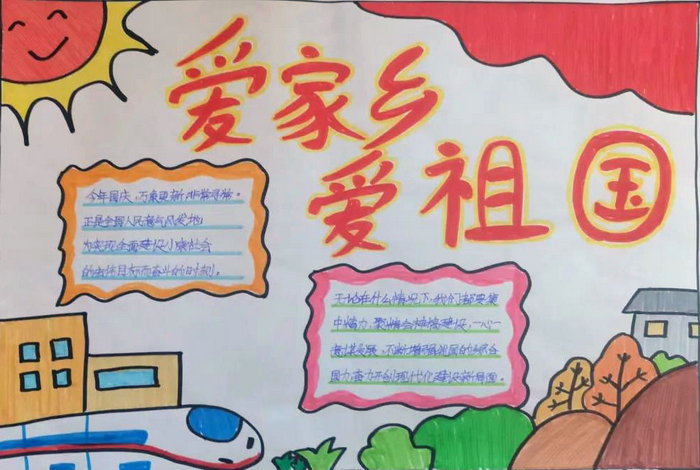 爱家乡
爱祖国
今年国庆,万象更新,非常寻常。
正是全国人民意气风发地
为实现全面建设小康社会
的总体目标而奋斗的时刻。
无论在什么情况下,我们都要集
中精力,聚精会神搞建设,一心一
意谋发展,不断增强祖国的综合
国力,奋力开创现代化建设新局面。